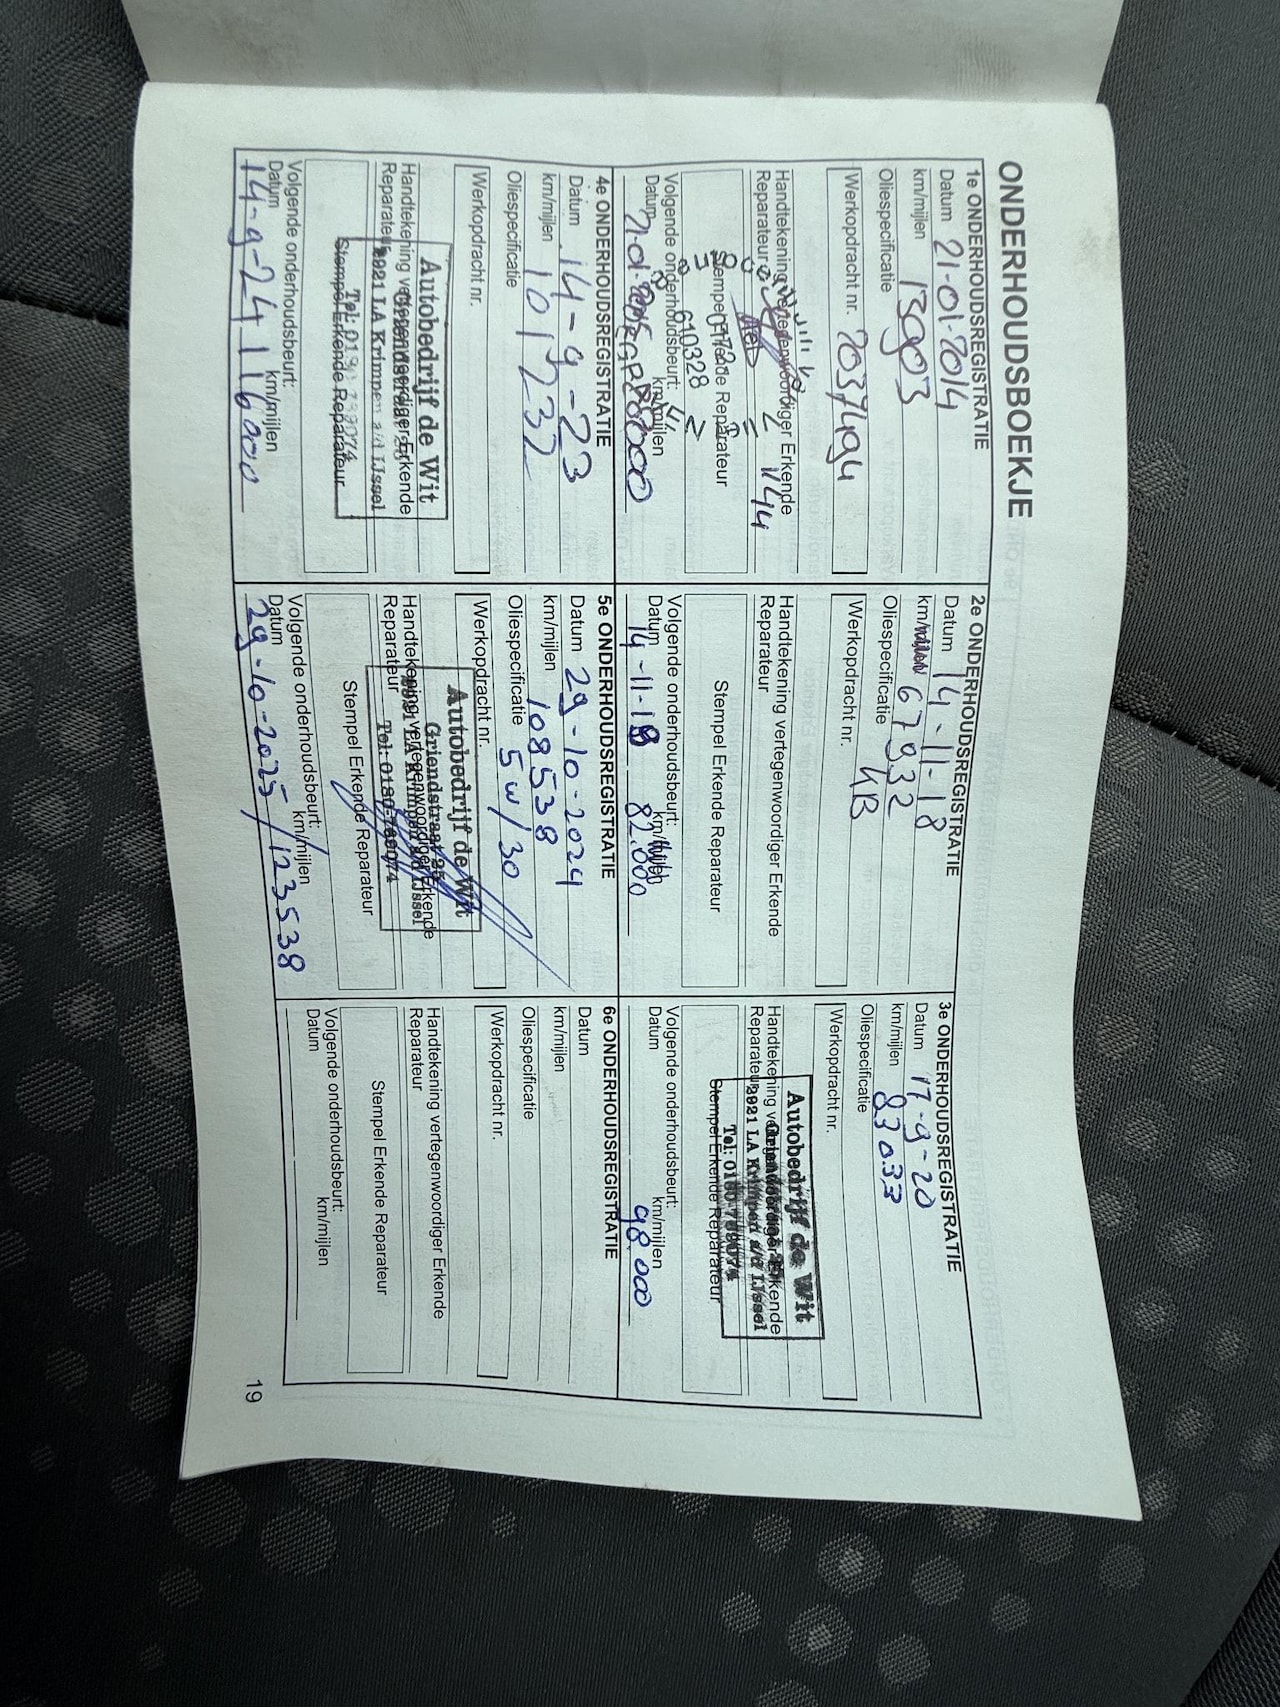 ONDERHOUDSBOEKJE
1e ONDERHOUDSREGISTRATIE
Datum 21-01-2014
km/mijlen 13903
Oliespecificatie
Werkopdracht nr. 2037494
Handtekening vertegenwoordiger Erkende
Reparateur 144
Stempel Erkende Reparateur
610328
Volgende onderhoudsbeurt:
Datum km/mijlen
2e ONDERHOUDSREGISTRATIE
Datum 14-11-18
km/mijlen 67932
Oliespecificatie
Werkopdracht nr. KB
Handtekening vertegenwoordiger Erkende
Reparateur
Stempel Erkende Reparateur
Volgende onderhoudsbeurt:
Datum km/mijlen
14-11-19 82.000
3e ONDERHOUDSREGISTRATIE
Datum 17-9-20
km/mijlen 83033
Oliespecificatie
Werkopdracht nr.
Handtekening vertegenwoordiger Erkende
Reparateur
Autobedrijf de Wit
2921 LA Krimpen a/d IJssel
Tel: 0180-789074
Stempel Erkende Reparateur
Volgende onderhoudsbeurt:
Datum km/mijlen
98000
4e ONDERHOUDSREGISTRATIE
Datum 14-9-23
km/mijlen 101232
Oliespecificatie
Werkopdracht nr.
Autobedrijf de Wit
Handtekening vertegenwoordiger Erkende
Reparateur
2921 LA Krimpen a/d IJssel
Tel: 0180-789074
Stempel Erkende Reparateur
Volgende onderhoudsbeurt:
Datum km/mijlen
14-9-24 116000
5e ONDERHOUDSREGISTRATIE
Datum 29-10-2024
km/mijlen 108538
Oliespecificatie 5w/30
Werkopdracht nr.
Autobedrijf de Wit
Griendstraat 25
Handtekening vertegenwoordiger Erkende
Reparateur
2921 LA Krimpen a/d IJssel
Tel: 0180-789074
Stempel Erkende Reparateur
Volgende onderhoudsbeurt:
Datum km/mijlen
29-10-2025/123538
6e ONDERHOUDSREGISTRATIE
Datum
km/mijlen
Oliespecificatie
Werkopdracht nr.
Handtekening vertegenwoordiger Erkende
Reparateur
Stempel Erkende Reparateur
Volgende onderhoudsbeurt:
Datum km/mijlen
19